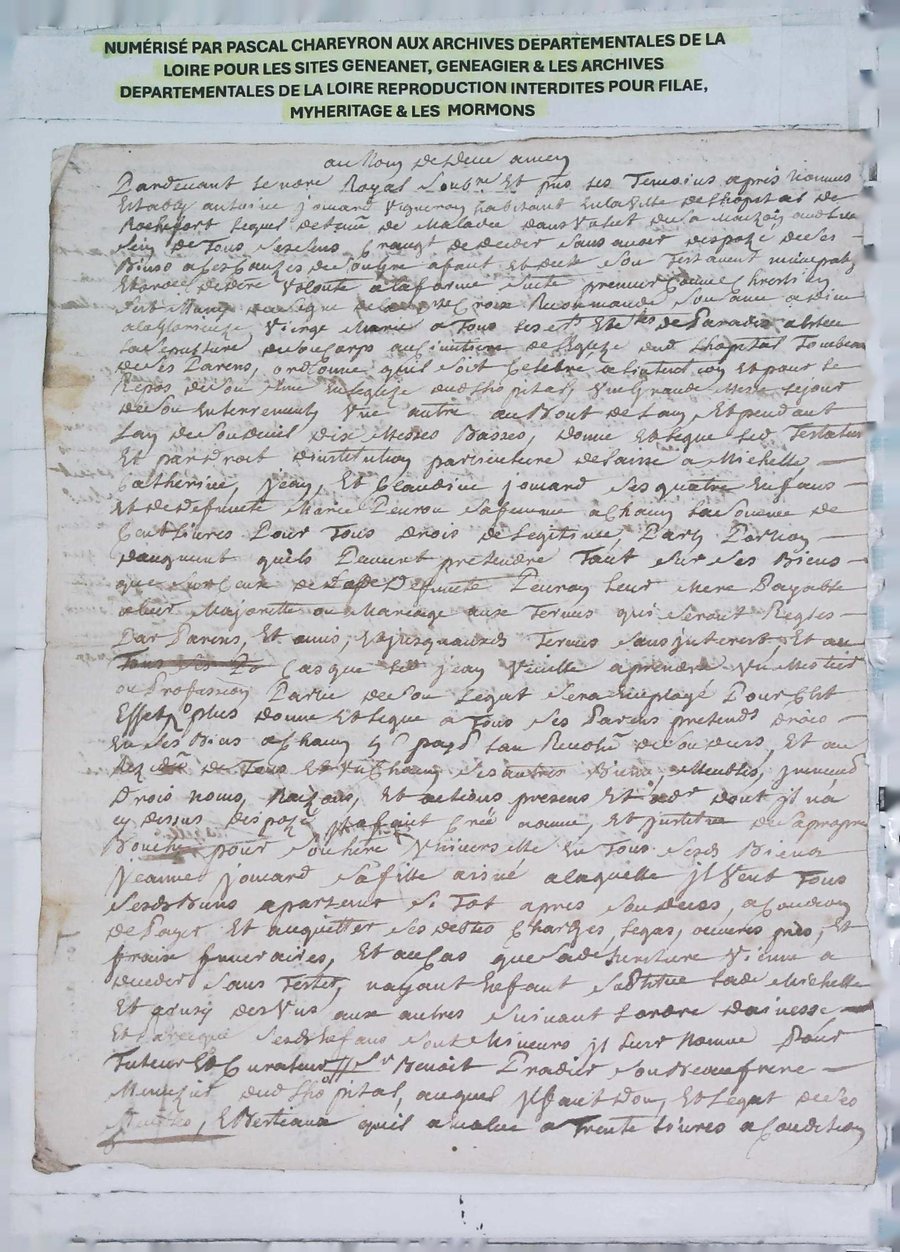 NUMÉRISÉ PAR PASCAL CHAREYRON AUX ARCHIVES DEPARTEMENTALES DE LA
LOIRE POUR LES SITES GENEANET, GENEAGIER & LES ARCHIVES
DEPARTEMENTALES DE LA LOIRE REPRODUCTION INTERDITES POUR FILAE,
MYHERITAGE & LES MORMONS
au Nom de dieu amen
Pardevant le nore Royal Soub.ne Et pns les Temoins apres Nommes
Estably antoine jomard Vigneron habitant En la Ville de Lhopital de
Rochefort lequel detenu de Maladie dans Un lit de sa Maizon
de Tous Ses Sens Craignt de deceder Sans avoir dispozé de Ses
Biens a fait Et dicté Son Testament
Et orde de dere Volonté a la forme Suite premier Comme Chrestien
Sest Muny du Signe de la Ste Croix Recommande Son ame a dieu
a la Glorieuze Vierge Marie a Tous les Sts Et Stes de Paradis
La Sepulture de Son Corps au Cimetiere de Leglize dud Lhopital Tombeau
de Ses Parens, ordonne quil Soit Celebré a Son intention Et pour le
Repos de Son ame En leglize dud Lhopital Une Grande Messe le jour
de Son Enterrement Une autre au Bout de Lan, Et pendant
Lan de Son deuil dix Messes Basses, donne Et legue led Testateur
Et par Droit dinstitution particuliere delaisse a Michelle
Catherine, jean, Et Claudine jomard Ses quatre Enfans
Et de defunte Marie Peuron Sa femme a Chacun la Somme de
Cent Livres Pour Tous Drois de Legitime, Part, Portion
daugment quils Peuvent pretendre Tant Sur Ses Biens
que Sur Ceux de lade Defunte Leur Mere Payable
a leur Majorité ou Mariage aux Termes qui Seront Regles
Par Parens, Et amis, Et jusquauxds Termes Sans jnterest, Et au
Cas que led jean Veuille aprendre Un Mestier
ou Profession Partie de Son Legat Sera Employé Pour Cest
Effet, plus donne Et legue a Tous Ses Parens pretends Drois
En Ses Biens a Chacun Lan Revolu de Son deces, Et au
de Tous Et Un Chacun Ses autres Biens, Meubles, jmmeub
Drois noms, Raizons, Et actions presens Et adv dont jl na
cy dessus dispozé, Creé nommé, Et jnstitue de Sa propre
Bouche pour Son here Universelle En Tous Sesds Biens
jeanne jomard Sa fille ainé a laquelle jl Veut Tous
Sesds Biens apartenir Si Tot apres Son deces, a Condion
de Payer Et acquitter Ses dettes Charges, Legas, œuvres pies, Et
fraix funeraires, Et au Cas que Sade heritiere Vienne a
deceder Sans Tester, nayant Enfant Substitue lade Michelle
Et ainsy des Uns aux autres Suivant Lordre dainesse
Et Sesds Enfans Sont Mineurs jl leur Nomme Pour
Tuteur Et Curateur Sr Benoit Pradier Son Beaufrere
dud Lhopital, auquel jl fait Don, Et Legat de
Et Bestiaux quil a Evalue a Trente Livres a Condition